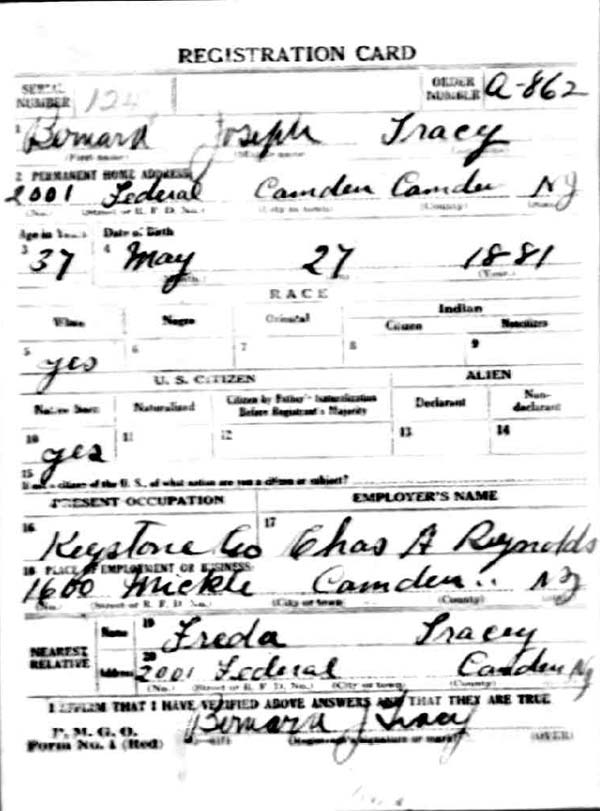 REGISTRATION CARD
SERIAL NUMBER 124 ORDER NUMBER A-862
1 Bernard Joseph Tracy
(First name) (Middle name)
2 PERMANENT HOME ADDRESS
2001 Federal Camden Camden NJ
(No.) (Street or R. F. D. No.) (City or town) (County) (State)
Age in Years Date of Birth
3 37 4 May 27 1881
(Month.) (Year.)
RACE
White Negro Oriental Indian
Citizen Noncitizen
5 yes 6 7 8 9
U. S. CITIZEN ALIEN
Native Born Naturalized Citizen by Father's Naturalization Before Registrant's Majority Declarant Non-declarant
10 yes 11 12 13 14
15 If not a citizen of the U. S., of what nation are you a citizen or subject?
PRESENT OCCUPATION EMPLOYER'S NAME
16 Keystone Co 17 Chas A Reynolds
18 PLACE OF EMPLOYMENT OR BUSINESS
1600 Mickle Camden NJ
(No.) (Street or R. F. D. No.) (City or town) (County)
NEAREST RELATIVE Name 19 Freda Tracey
Address 20 2001 Federal Camden NJ
(No.) (Street or R. F. D. No.) (City or town) (County)
I AFFIRM THAT I HAVE VERIFIED ABOVE ANSWERS AND THAT THEY ARE TRUE
P. M. G. O.
Form No. 1 (Red) Bernard J Tracy
(Registrant's signature or mark) (OVER)